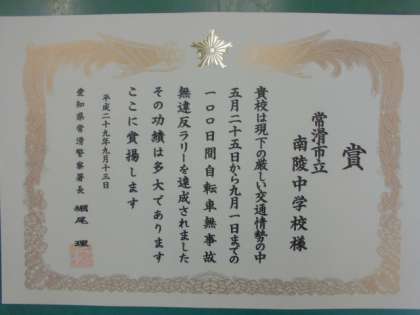 賞
常滑市立
南陵中学校様
貴校は現下の厳しい交通情勢の中
五月二十五日から九月一日までの
一〇〇日間自転車無事故
無違反ラリーを達成されました
その功績は多大であります
ここに賞揚します
平成二十九年九月十五日
愛知県常滑警察署長